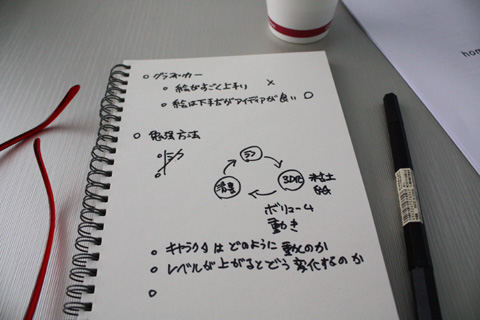 ○ グラスホッカー
○ 絵がすごく上手い ×
○ 絵は下手だがアイディアが良い ○
○ 方法
3D化 粘土
絵
ボリューム
動き
○ キャラクタはどのように動くのか
○ レベルが上がるとどう変化するのか
○
hom